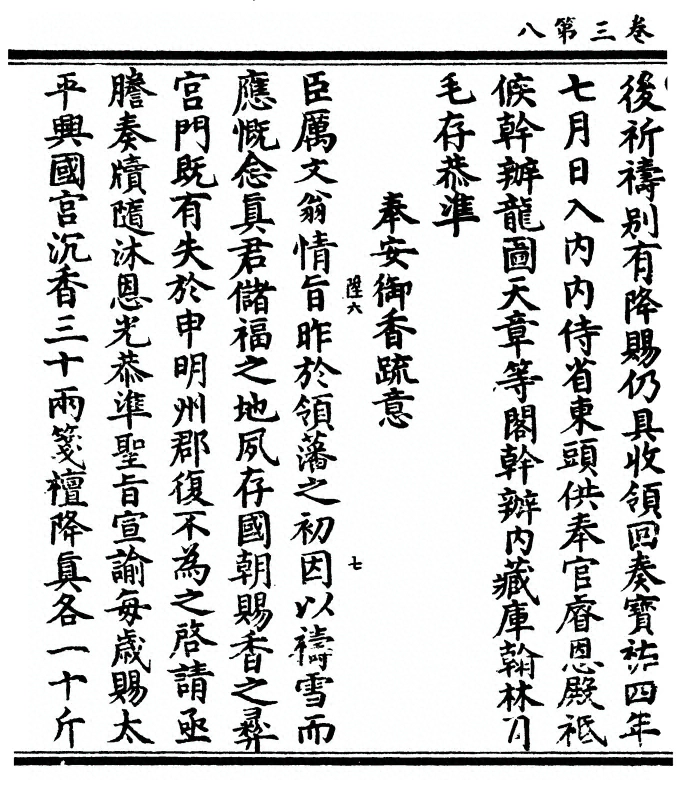 卷三第八
後祈禱别有降賜仍具收領回奏寶祐四年
七月日入内内侍省東頭供奉官睿恩殿祗
候幹辦龍圖天章等閣幹辦内藏庫翰林司
毛存恭準
奉安御香䟽意
陞六
七
臣厲文翁情旨昨於領藩之初因以禱雪而
應慨念真君儲福之地夙存國朝賜香之彞
宫門既有失於申明州郡復不為之啓請亟
謄奏牘隨沐恩光恭準聖旨宣諭每歲賜太
平興國宫沉香三十兩箋檀降真各一十斤